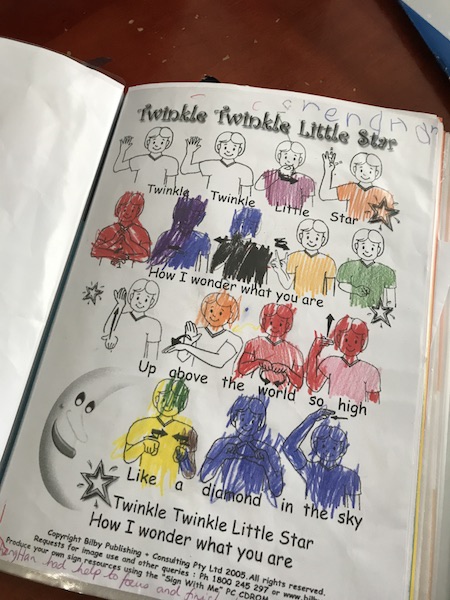 Twinkle Twinkle Little Star
Twinkle Twinkle Little Star
How I wonder what you are
Up above the world so high
Like a diamond in the sky
Twinkle Twinkle Little Star
How I wonder what you are
Copyright Bilby Publishing + Consulting Pty Ltd 2005. All rights reserved.
Requests for image use and other queries : Ph 1800 245 297 or www.bilby
Produce your own sign resources using the "Sign With Me" PC CDROM
had help to focus and